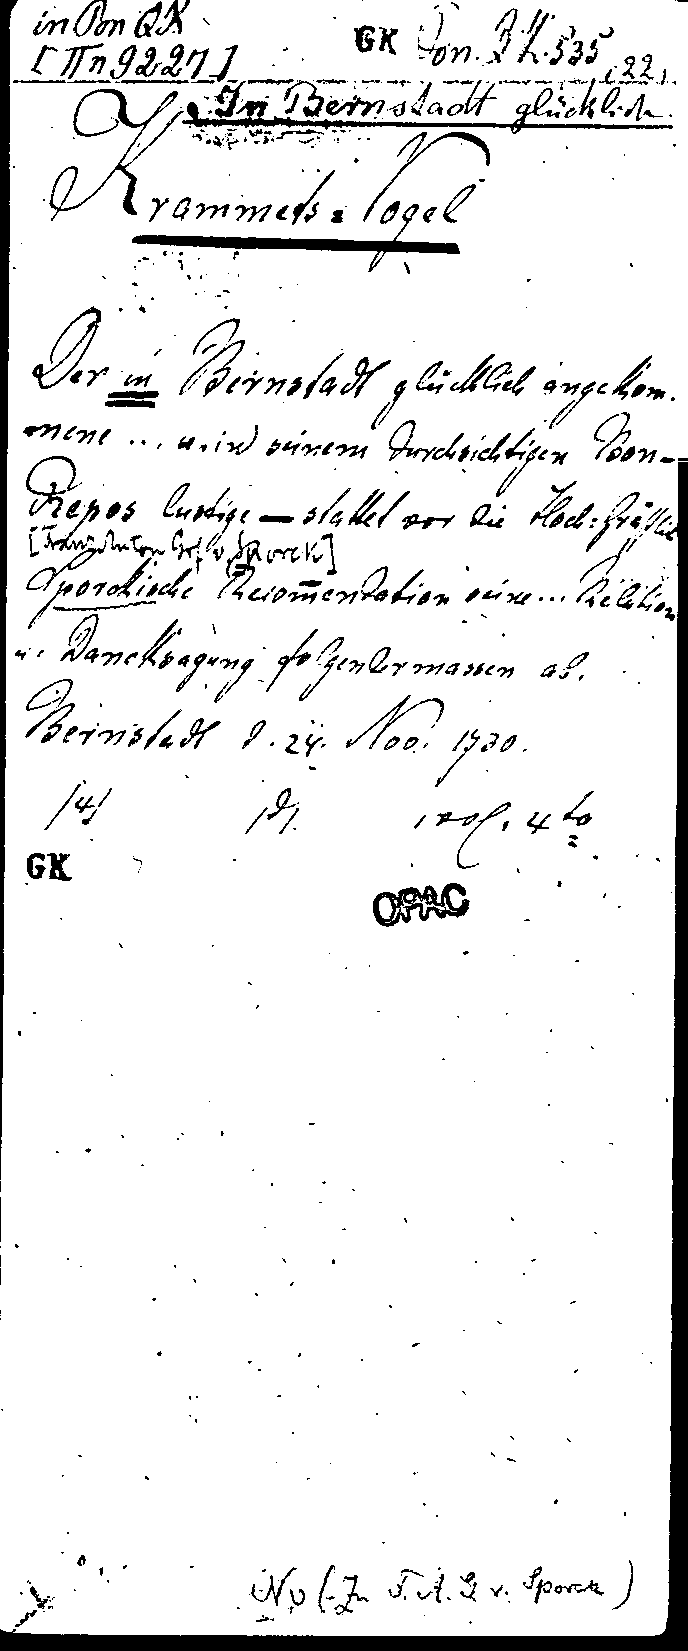 in Bm QK
[Πn 9227]
GK Yon. 3 K. 535, (22)
In Bernstadt glücklich
Krammets=Vogel
Der in Bernstadt glücklich angekom-
mene ... u. in seinem durchsichtigen Bon-
Repos lustige — stattet vor die Hoch=Gräflich
[Franz Anton Grf. v. Sporck]
Sporckische Recommendation seine ... Relation
u. Dancksagung folgendermassen ab.
Bernstadt d. 24. Nov. 1730.
/4/ /d/. 4to
GK
OPAC
(-Zu F. A. G. v. Sporck)